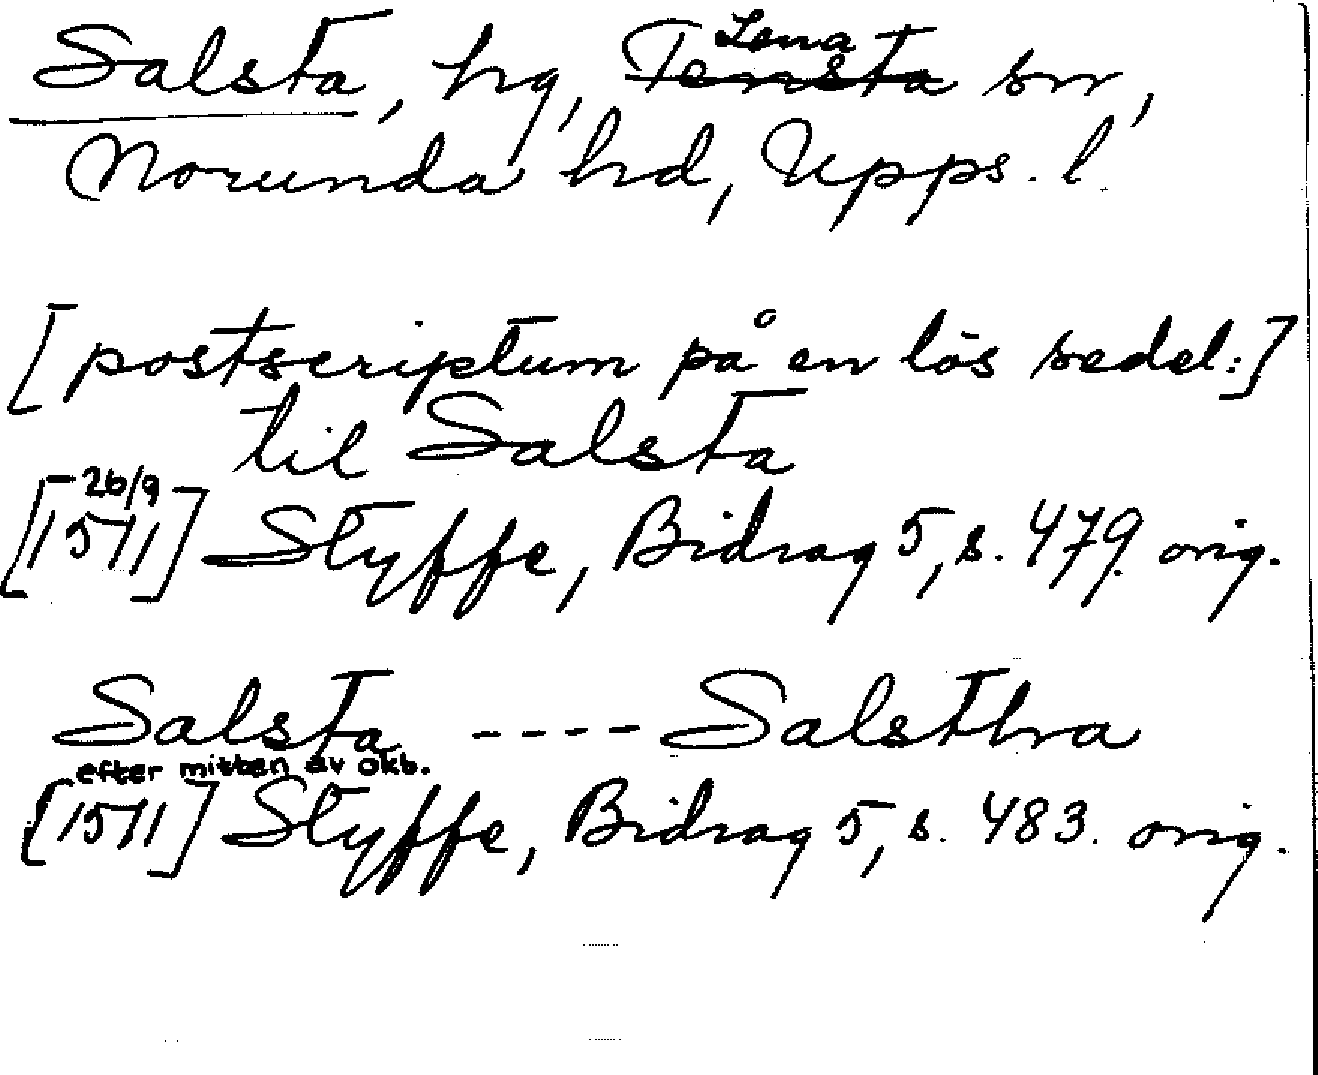 Salsta, hg, Tensta Lena sn,
Norunda hd, Upps. l.
[postscriptum på en lös sedel:]
til Salsta
26/9
[1511] Styffe, Bidrag 5, s. 479. orig.
Salsta ---- Salstha
efter mitten av okb.
[1511] Styffe, Bidrag 5, s. 483. orig.